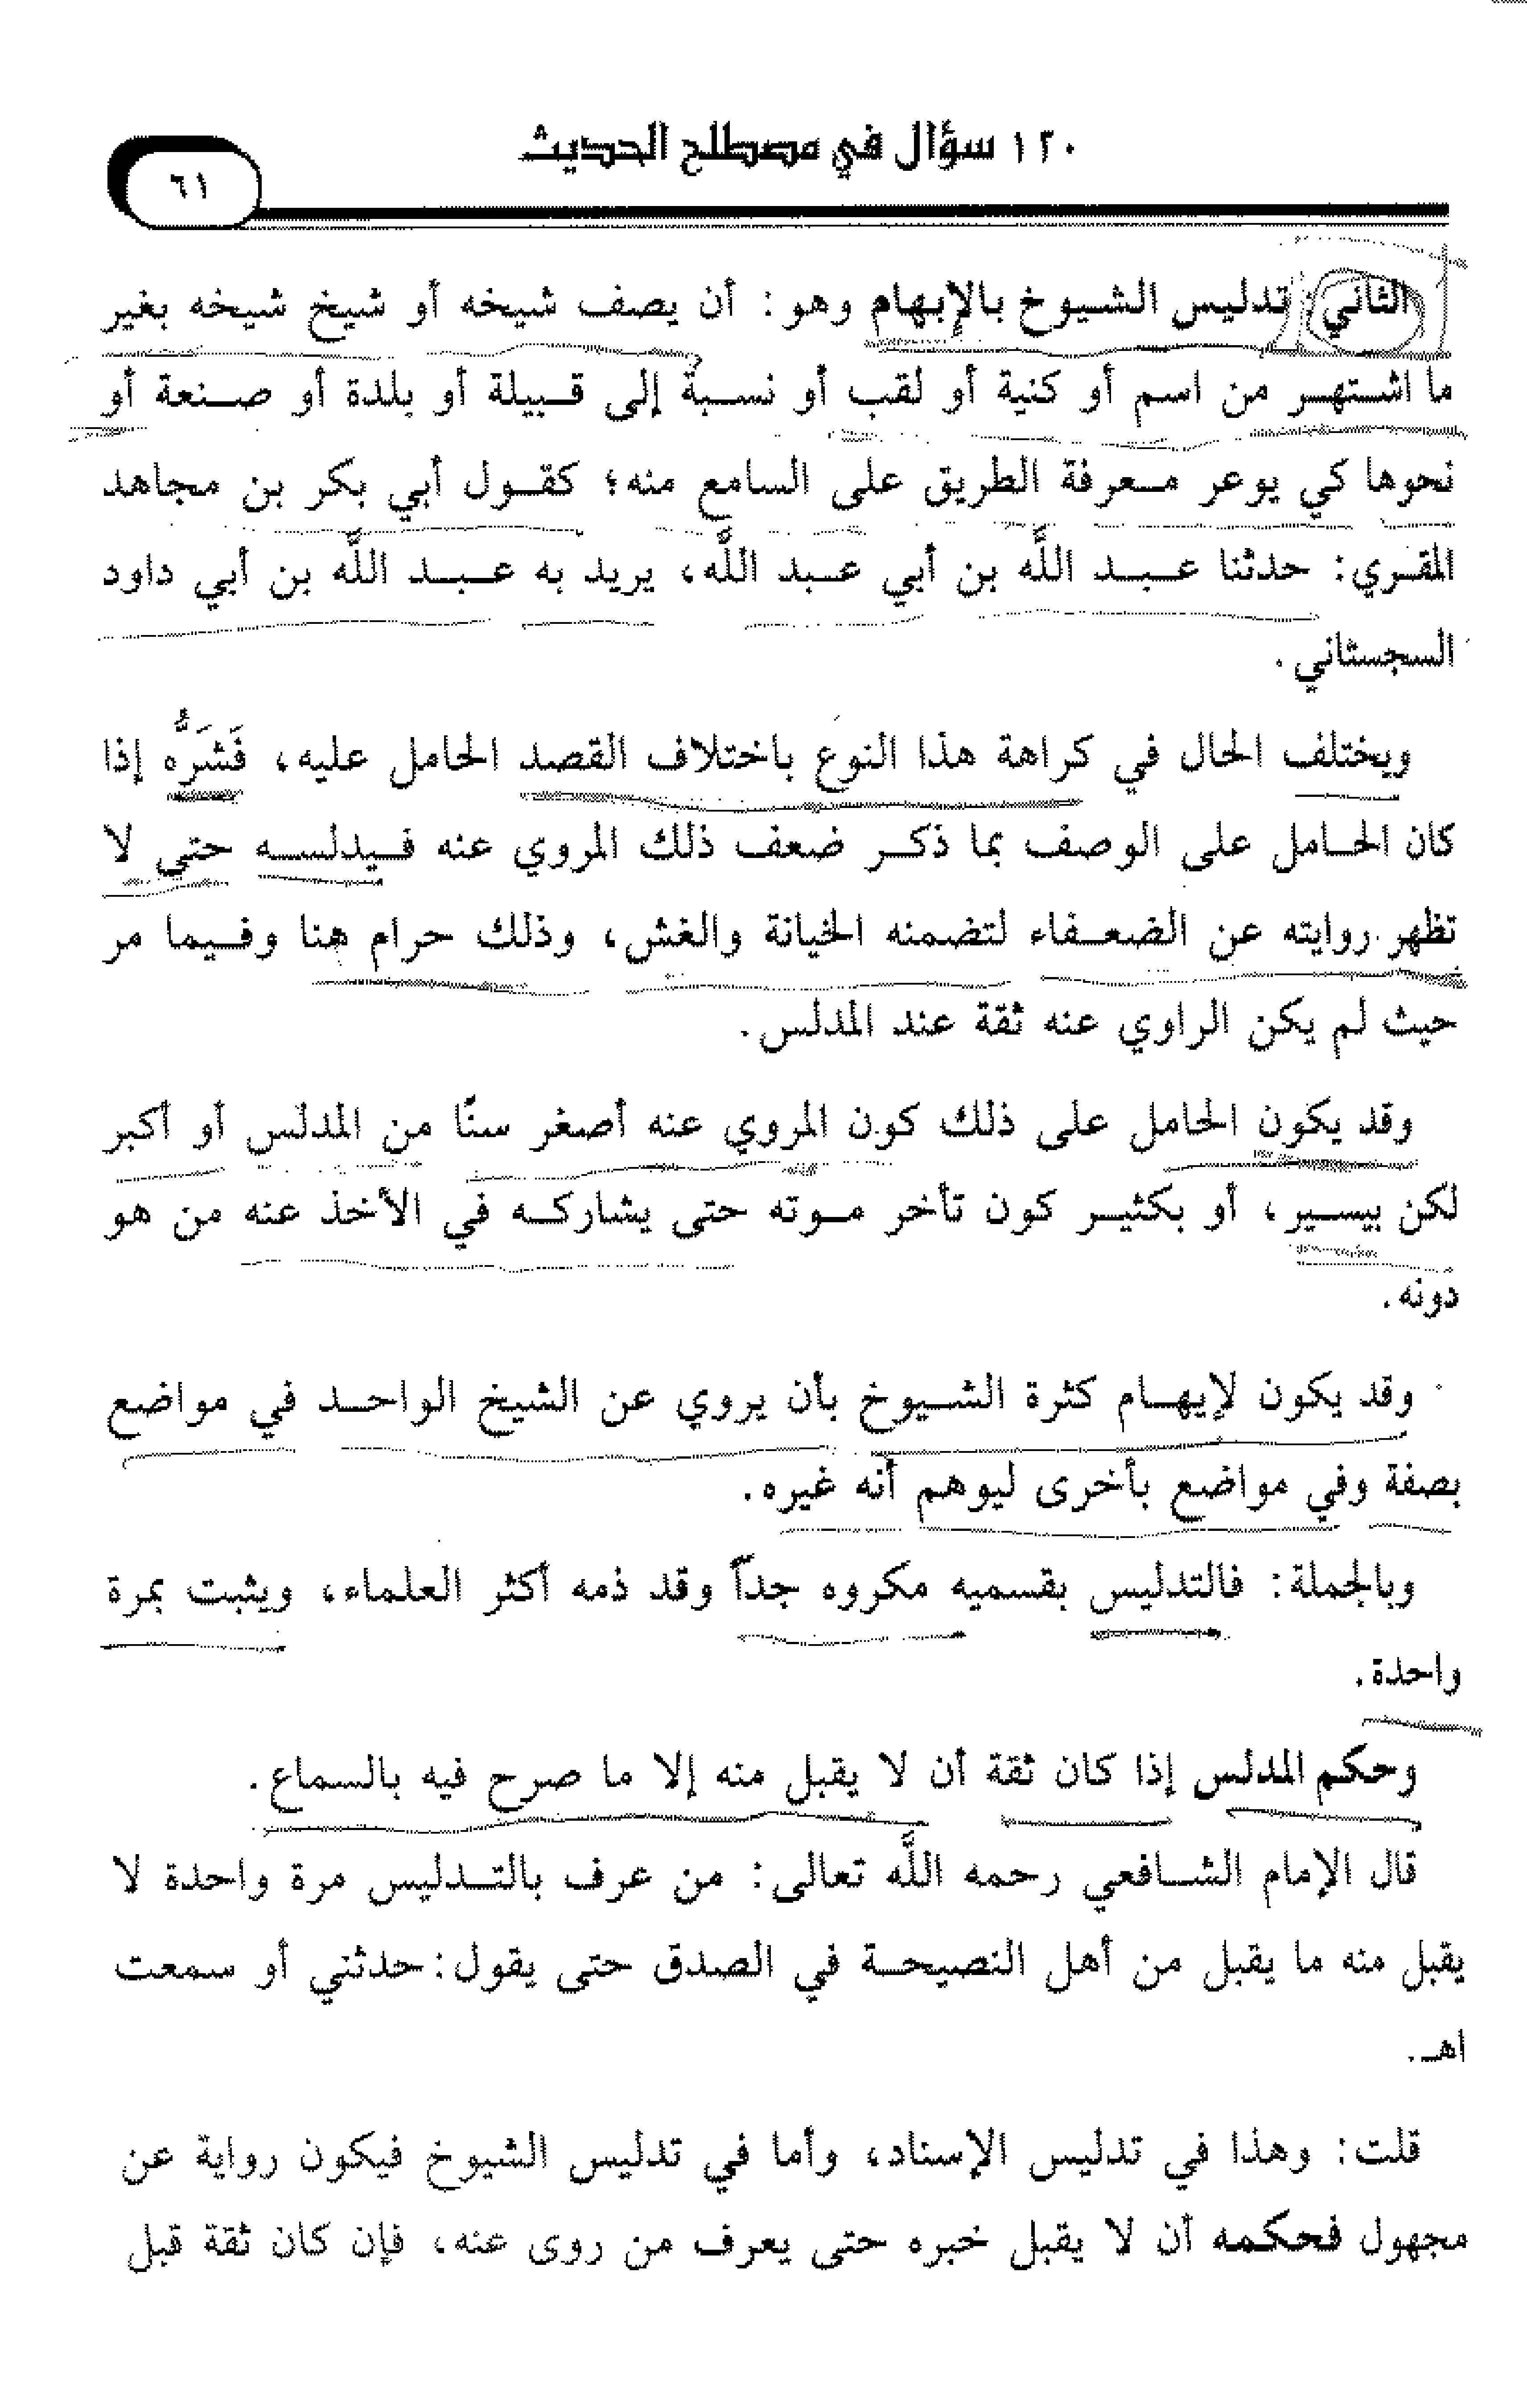 ١٢٠ سؤال في مصطلح الحديث
٦١
الثاني: تدليس الشيوخ بالإبهام وهو: أن يصف شيخه أو شيخ شيخه بغير
ما اشتهر من اسم أو كنية أو لقب أو نسبة إلى قبيلة أو بلدة أو صنعة أو
نحوها كي يوعر معرفة الطريق على السامع منه؛ كقول أبي بكر بن مجاهد
المقري: حدثنا عبد اللَّه بن أبي عبد اللَّه، يريد به عبد اللَّه بن أبي داود
السجستاني.
ويختلف الحال في كراهة هذا النوع باختلاف القصد الحامل عليه، فَشَرُّه إذا
كان الحامل على الوصف بما ذكر ضعف ذلك المروي عنه فيدلسه حتى لا
تظهر روايته عن الضعفاء لتضمنه الخيانة والغش، وذلك حرام هنا وفيما مر
حيث لم يكن الراوي عنه ثقة عند المدلس.
وقد يكون الحامل على ذلك كون المروي عنه أصغر سنًا من المدلس أو أكبر
لكن بيسير، أو بكثير كون تأخر موته حتى يشاركه في الأخذ عنه من هو
دونه.
وقد يكون لإيهام كثرة الشيوخ بأن يروي عن الشيخ الواحد في مواضع
بصفة وفي مواضع بأخرى ليوهم أنه غيره.
وبالجملة: فالتدليس بقسميه مكروه جداً وقد ذمه أكثر العلماء، ويثبت بمرة
واحدة.
وحكم المدلس إذا كان ثقة أن لا يقبل منه إلا ما صرح فيه بالسماع.
قال الإمام الشافعي رحمه اللَّه تعالى: من عرف بالتدليس مرة واحدة لا
يقبل منه ما يقبل من أهل النصيحة في الصدق حتى يقول: حدثني أو سمعت
اهـ.
قلت: وهذا في تدليس الإسناد، وأما في تدليس الشيوخ فيكون رواية عن
مجهول فحكمه أن لا يقبل خبره حتى يعرف من روى عنه، فإن كان ثقة قبل